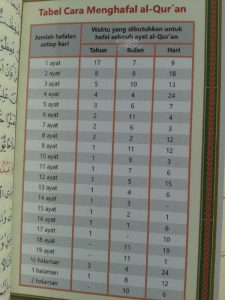 Tabel Cara Menghafal al-Qur`an
Jumlah hafalan setiap hari
Waktu yang dibutuhkan untuk
hafal seluruh ayat al-Qur`an
Tahun Bulan Hari
1 ayat 17 7 9
2 ayat 8 9 18
3 ayat 5 10 13
4 ayat 4 4 24
5 ayat 3 6 7
6 ayat 2 11 4
7 ayat 2 6 3
8 ayat 2 2 12
9 ayat 1 11 12
10 ayat 1 9 3
11 ayat 1 7 6
12 ayat 1 5 15
13 ayat 1 4 6
14 ayat 1 3 -
15 ayat 1 2 1
16 ayat 1 1 6
17 ayat 1 - 10
18 ayat - 11 19
19 ayat - 11 1
½ halaman 3 4 24
1 halaman 12
2 halaman - 10 6